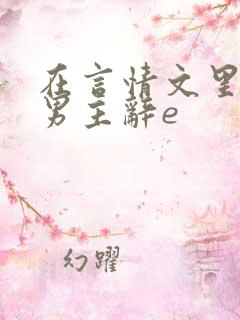 在言情文里
男主辭e
幻躍